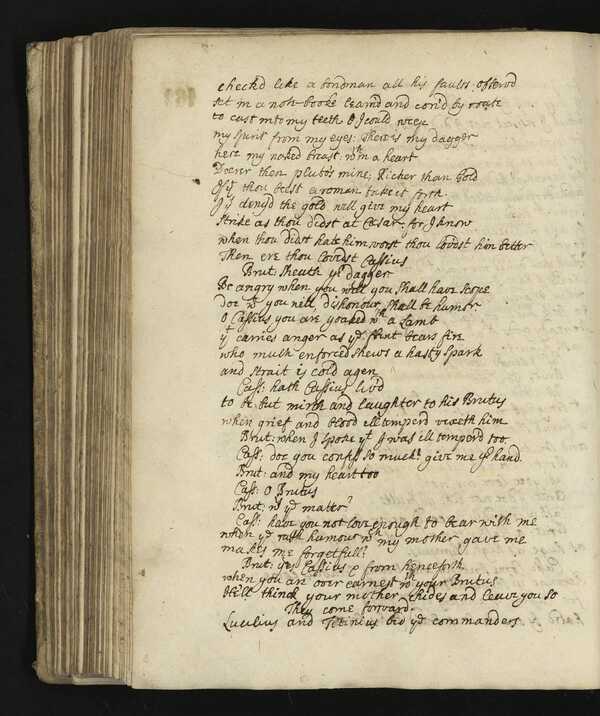 checkd like a bondman all his faults, observd
set in a note-booke learnd and con'd by roate
to cast into my teeth O I could weep
my spirit from my eyes: There is my dagger
here my naked breast, wthin a heart
Deerer then pluto's mine; Richer than Gold
If yt thou beest a roman take it forth
I yt deny'd the gold will give my heart
strike as thou didst at Cæsar, for I know
when thou didst hate him worst thou lovedst him better
Then ere thou lovedst Cassius
Brut: Sheath yr dagger
Be angry when you will you shall have scope
doe wt you will, dishonour shall be humor.
O Cassius you are yoaked wth a Lamb
yt carries anger as ye flint bears fire
who much enforced shews a hasty spark
and strait is cold agen
Cass: hath Cassius liv'd
to be but mirth and laughter to his Brutus
when grief and blood ill temperd vexeth him
Brut: when I spoke yt I was ill temperd too.
Cass: doe you confess so much? give me yr hand.
Brut: and my heart too
Cass: O Brutus
Brut: wt ye matter?
Cass: have you not love enough to bear with me
when ye rash humour wch my mother gave me
makes me forgetfull?
Brut: yes Cassius & from henceforth
when you are over earnest wth your Brutus
Hee'll think your mother chides and leave you so
They come forward.
Lucilius and Titinius bid ye commanders